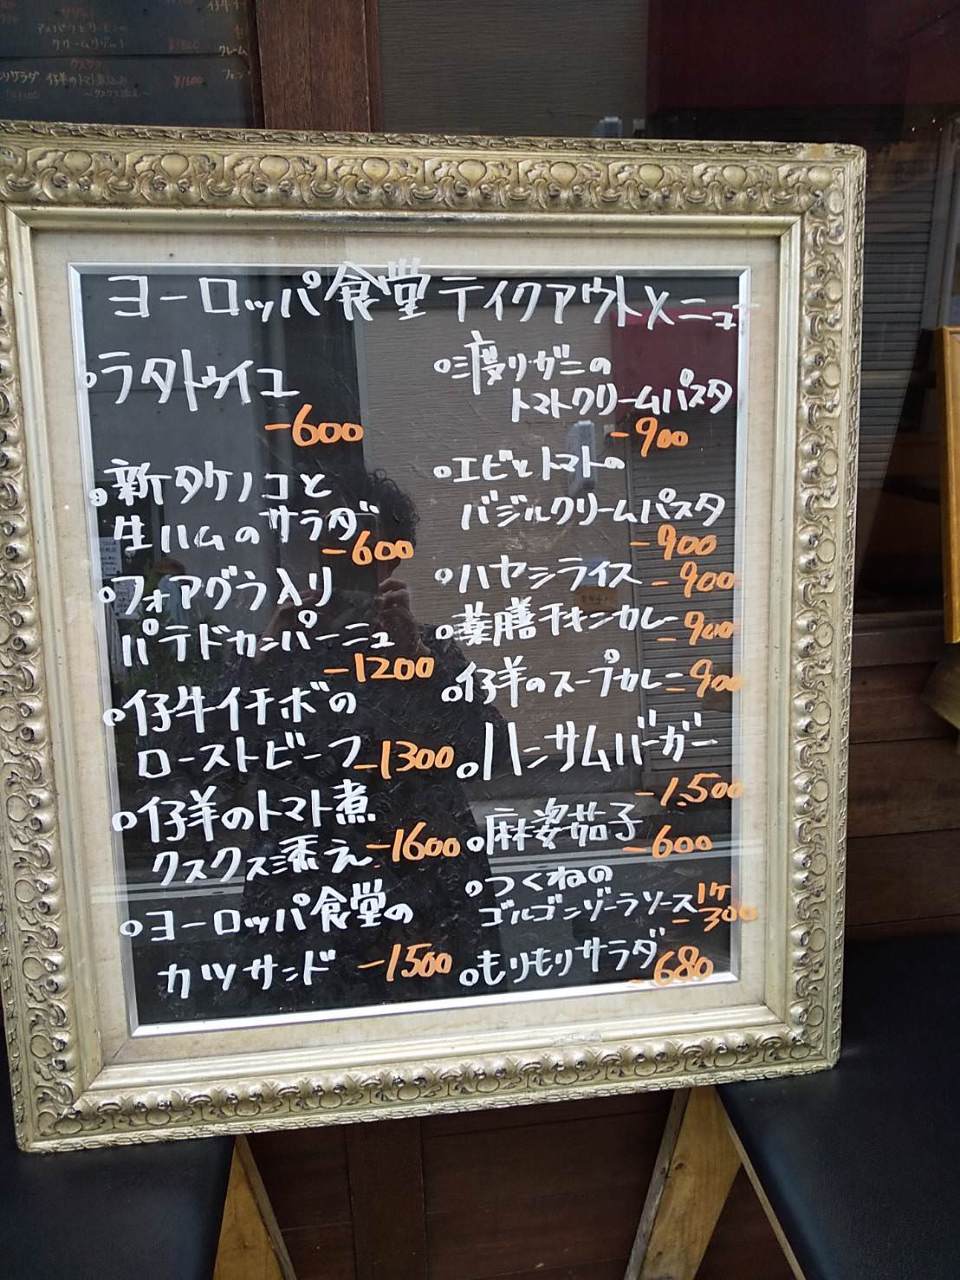 アスパラとサーモンの
クリームリゾット
クレーム
仔羊のトマト煮込み ¥1600
～クスクス添え～
ヨーロッパ食堂 テイクアウトメニュー
○ラタトゥイユ
-600
○新タケノコと
生ハムのサラダ
-600
○フォアグラ入り
パテドカンパーニュ
-1200
○仔牛イチボの
ローストビーフ -1300
○仔羊のトマト煮
クスクス添え -1600
○ヨーロッパ食堂の
カツサンド -1500
○渡りガニの
トマトクリームパスタ
-900
○エビとトマトの
バジルクリームパスタ
-900
○ハヤシライス -900
○薬膳チキンカレー -900
○仔羊のスープカレー -900
○ハンサムバーガー
-1.500
○麻婆茄子
-600
○つくねの
ゴルゴンゾーラソース 1ケ
-300
○もりもりサラダ -680